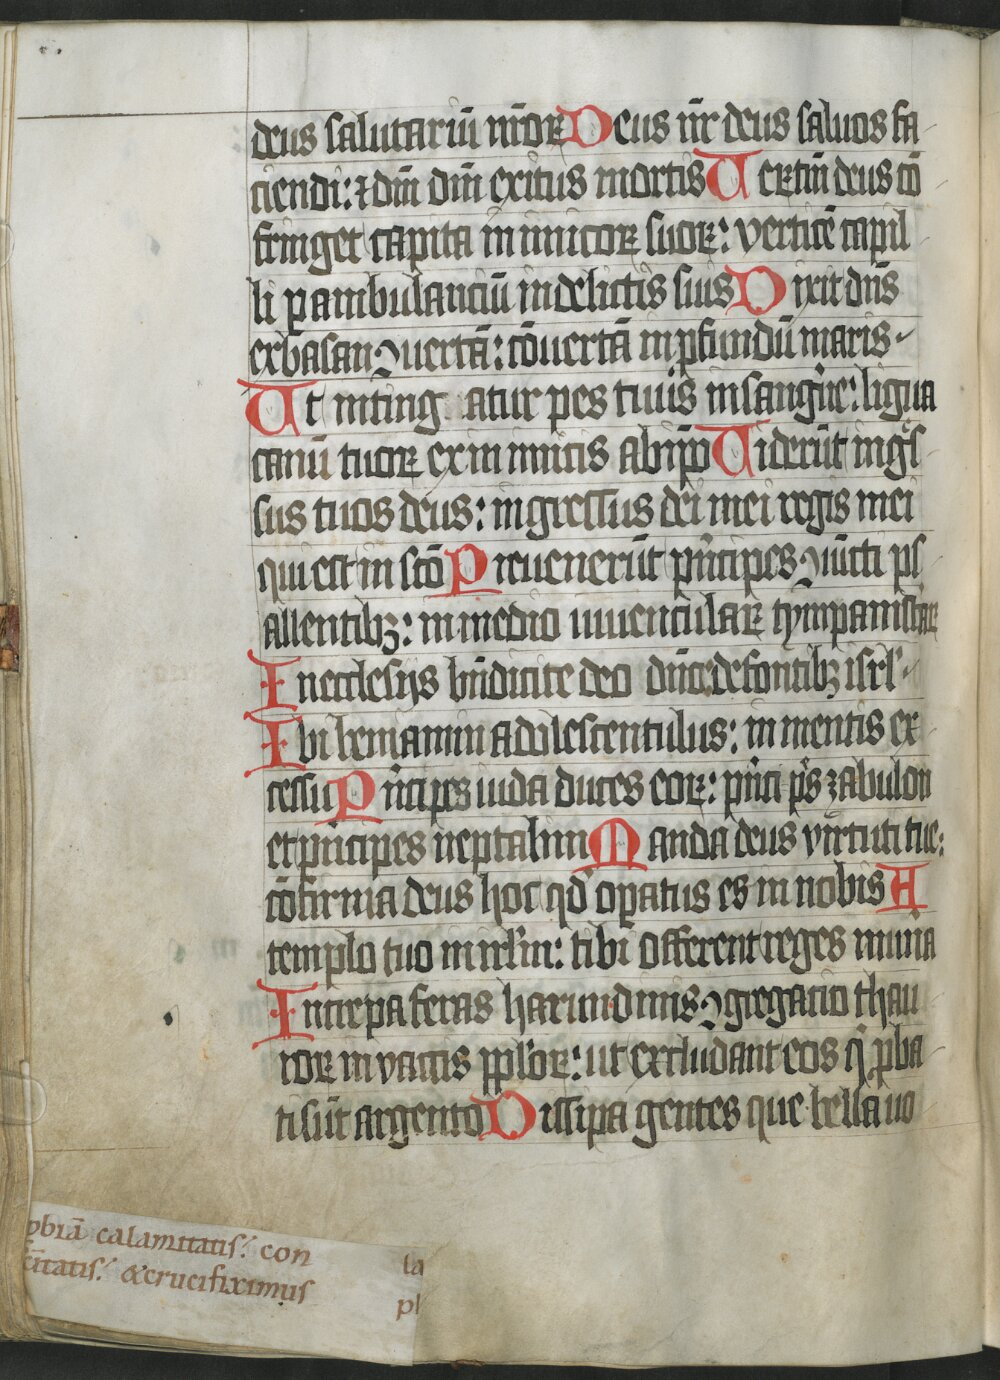 deus salutariū nr̄oꝝ Deus nr̄ deus saluos fa
ciendi: ⁊ dn̄i dn̄i exitus mortis Uerūtn̄ deus cō
fringet capita inimicoꝝ suoꝝ: verticē capil
li ꝑambulanciū in delictis suis Dixit dn̄s
ex basan ꝯuertā: cōuertā in ꝓfundū maris
Ut inting atur pes tuus in sanguīe: ligua
canū tuoꝝ ex inimicis ab ip̄o Uiderūt ingͥs
sus tuos deus: ingressus dei mei regis mei
qui est in scō Preuenerūt pͥncipes ꝯiūcti ps
allentibꝫ: in medio iuuenculaꝝ tympanistaꝝ
In ecclesijs bn̄dicite deo dn̄o de fontibꝫ isrl̓
Ibi beniamin adolescentulus: in mentis ex
cessu Pͥncipes iuda duces eoꝝ: pͥnciپͥs zabulon
et pͥncipes neptalim Manda deus virtuti tue:
cōfirma deus hoc qd̓ oꝑatus es in nobis A
templo tuo in irl̄m: tibi offerent reges munīa
Increpa feras harundinis ꝯgregatio thau
roꝝ in vaccis ppl̓oꝝ: ut excludant eos qͥ ꝓba
ti sūt argento Dissipa gentes que bella uo
ꝓbiā calamitatis: con
citatis: &crucifiximus
la
pl